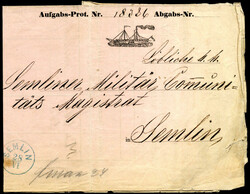 Aufgabs-Prot. Nr. 18326 Abgabs-Nr.
Löbliche k. k.
Semliner Militär Communi-
täts Magistrat
Semlin